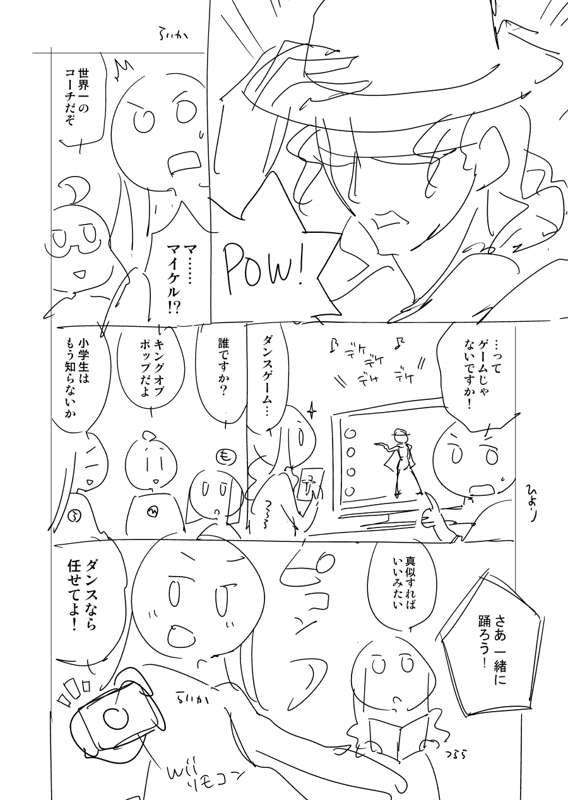 POW!
らいか
世界一の
コーチだぞ
マ……
マイケル!?
…って
ゲームじゃ
ないですか!
♪
デケ
デケ
デケ
♪
ダンスゲーム…
誰ですか?
キングオブ
ポップだよ
小学生は
もう知らないか
も
ひより
さあ一緒に
踊ろう!
真似すれば
いいみたい
つらら
ピコン
ダンスなら
任せてよ!
らいか
Wii
リモコン